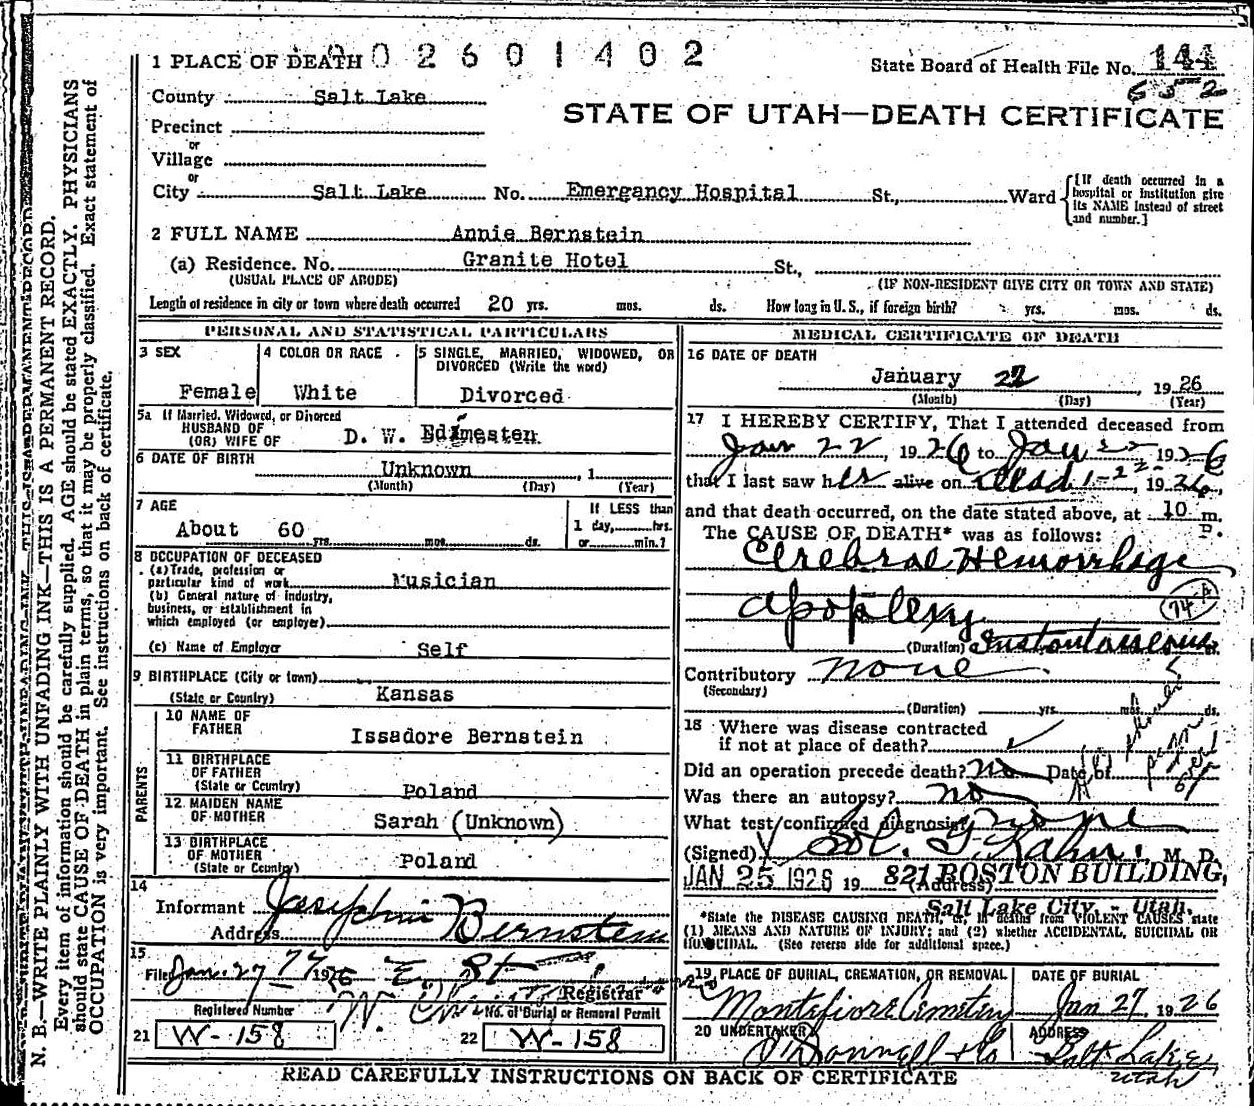 N. B.—WRITE PLAINLY WITH UNFADING INK—THIS IS A PERMANENT RECORD.
Every item of information should be carefully supplied. AGE should be stated EXACTLY. PHYSICIANS
should state CAUSE OF DEATH in plain terms, so that it may be properly classified. Exact statement of
OCCUPATION is very important. See instructions on back of certificate.
1 PLACE OF DEATH 002601402
State Board of Health File No. 144
652
County Salt Lake
STATE OF UTAH—DEATH CERTIFICATE
Precinct
or
Village
or
City Salt Lake No. Emergancy Hospital St., Ward
[If death occurred in a
hospital or institution give
its NAME instead of street
and number.]
2 FULL NAME Annie Bernstein
(a) Residence. No. Granite Hotel St.,
(USUAL PLACE OF ABODE) (IF NON-RESIDENT GIVE CITY OR TOWN AND STATE)
Length of residence in city or town where death occurred 20 yrs. mos. ds. How long in U.S., if foreign birth? yrs. mos. ds.
PERSONAL AND STATISTICAL PARTICULARS
3 SEX
Female
4 COLOR OR RACE
White
5 SINGLE, MARRIED, WIDOWED, OR
DIVORCED (Write the word)
Divorced
5a If Married, Widowed, or Divorced
HUSBAND OF
(OR) WIFE OF D. W. Edimesten
6 DATE OF BIRTH Unknown , 1
(Month) (Day) (Year)
7 AGE
About 60 yrs. mos. ds.
If LESS than
1 day, hrs.
or min.?
8 OCCUPATION OF DECEASED
(a) Trade, profession or
particular kind of work Musician
(b) General nature of industry,
business, or establishment in
which employed (or employer)
(c) Name of Employer Self
9 BIRTHPLACE (City or town)
(State or Country) Kansas
PARENTS
10 NAME OF
FATHER Issadore Bernstein
11 BIRTHPLACE
OF FATHER
(State or Country) Poland
12 MAIDEN NAME
OF MOTHER Sarah (Unknown)
13 BIRTHPLACE
OF MOTHER
(State or Country) Poland
14
Informant Josephine Bernstein
Address
15
Filed Jan. 27 1926
Registrar
Registered Number No. of Burial or Removal Permit
21 W-158 22 W-158
MEDICAL CERTIFICATE OF DEATH
16 DATE OF DEATH
January 22 1926
(Month) (Day) (Year)
17 I HEREBY CERTIFY, That I attended deceased from
Jan 22, 1926 to Jan 22 1926
that I last saw her alive on dead 1-22-, 1926,
and that death occurred, on the date stated above, at 10 P. m.
The CAUSE OF DEATH* was as follows:
Cerebral Hemorrhage
apoplexy 74-A
(Duration) Instantaneous
Contributory none
(Secondary)
(Duration) yrs. mos. ds.
18 Where was disease contracted
if not at place of death?
Did an operation precede death? no Date of
Was there an autopsy? no
What test confirmed diagnosis? none
(Signed) Sol. G. Kahn, M. D.
JAN 25 1926 19 (Address) 821 BOSTON BUILDING,
Salt Lake City - Utah.
*State the DISEASE CAUSING DEATH, or, in deaths from VIOLENT CAUSES state
(1) MEANS AND NATURE OF INJURY; and (2) whether ACCIDENTAL, SUICIDAL OR
HOMICIDAL. (See reverse side for additional space.)
19 PLACE OF BURIAL, CREMATION, OR REMOVAL
Montefiore Cemetery
DATE OF BURIAL
Jan 27 1926
20 UNDERTAKER
O'Donnell & Co
ADDRESS
Salt Lake
Utah
READ CAREFULLY INSTRUCTIONS ON BACK OF CERTIFICATE